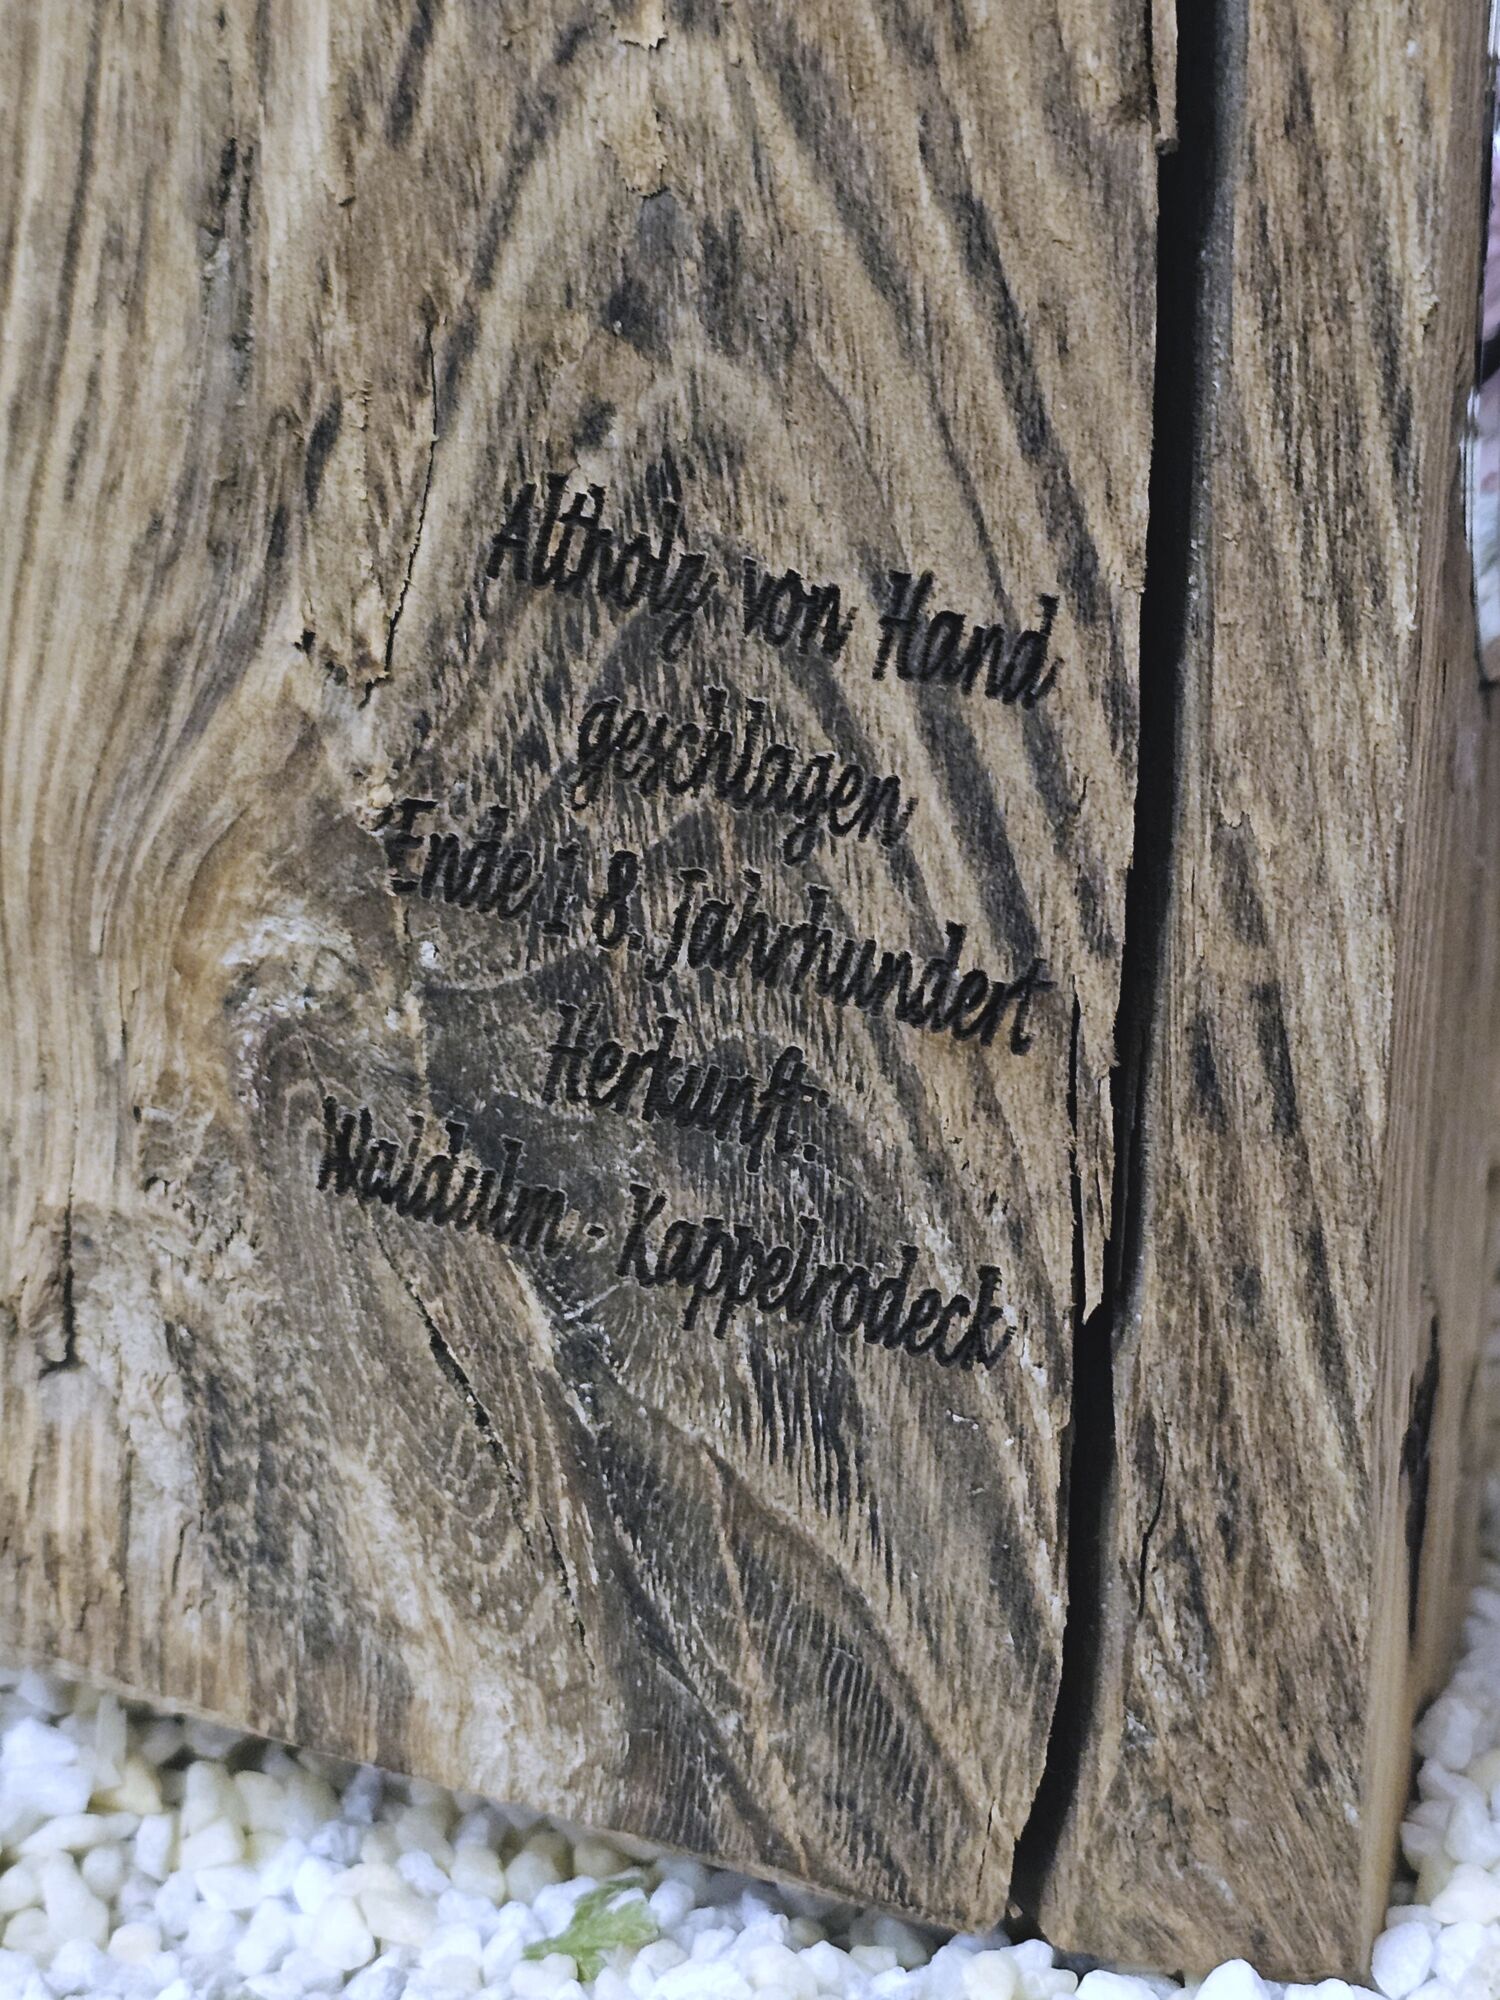 Altholz von Hand
geschlagen
Ende 18. Jahrhundert
Herkunft:
Waldulm - Kappelrodeck